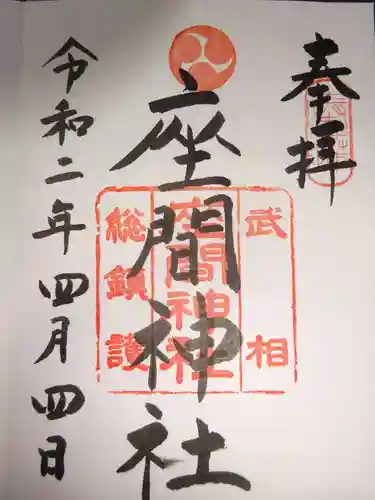 奉拝
武相
座間神社
総鎮護
座間神社
令和二年四月四日